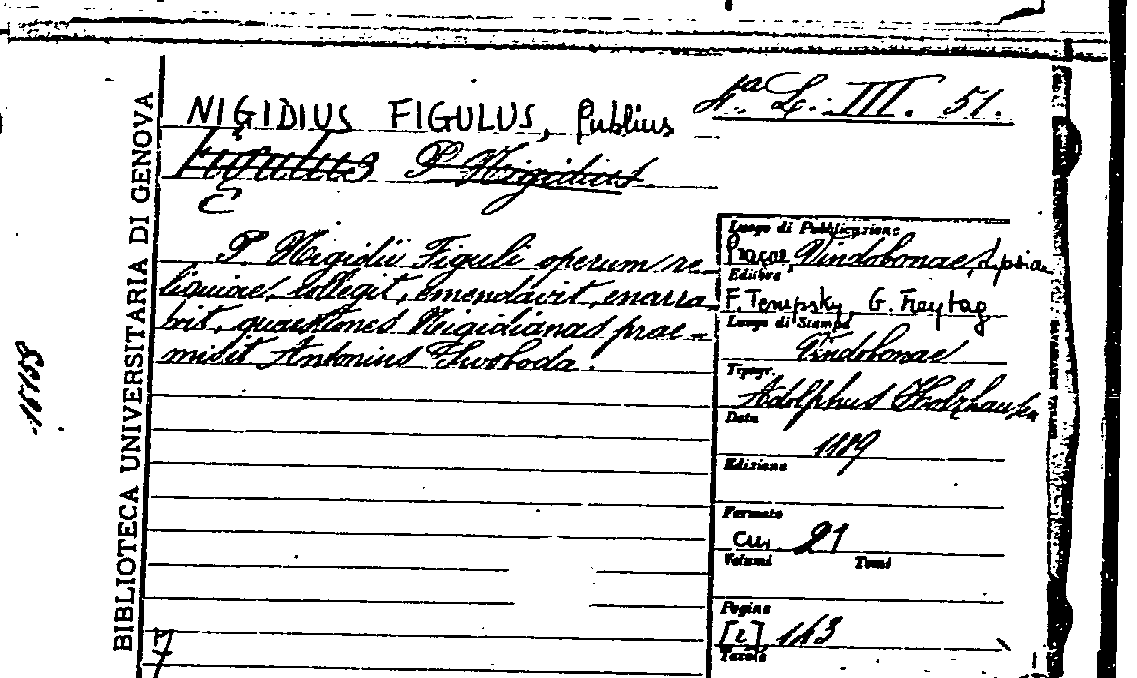 NIGIDIUS FIGULUS, Publius
4ª L. III. 51.
Figulus P. Nigidius
P. Nigidii Figuli operum re-
liquiae, collegit, emendavit, enarra-
vit, quaestiones Nigidianas prae-
misit Antonius Swoboda.
Luogo di Pubblicazione
Pragae, Vindobonae, Lipsiae
Editore
F. Tempsky, G. Freytag
Luogo di Stampa
Vindobonae
Tipogr.
Adolphus Holzhausen
Data
1889
Edizione
Formato
cm. 21
Volumi Tomi
Pagine
[2], 143
Tavole
BIBLIOTECA UNIVERSITARIA DI GENOVA
7